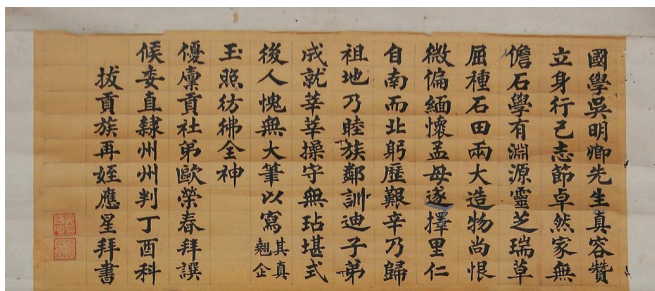 國學吳明卿先生真容贊
立身行己志節卓然家無
儋石學有淵源靈芝瑞草
屈種石田兩大造物尚恨
微偏緬懷孟母遂擇里仁
自南而北躬歷艱辛乃歸
祖地乃睦族鄰訓迪子弟
成就莘莘操守無玷堪式
後人愧無大筆以寫其真翹企
玉照彷彿全神
優廩貢社弟歐榮春拜譔
候委直隸州州判丁酉科
拔貢族再姪應星拜書